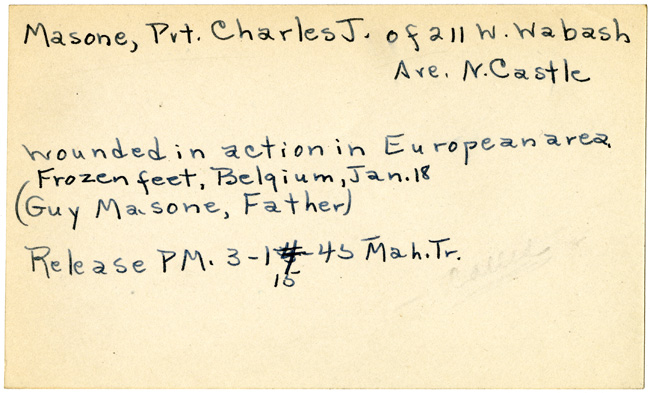 Masone, Pvt. Charles J. of 211 W. Wabash
Ave. N. Castle
wounded in action in European area.
Frozen feet, Belgium, Jan. 18
(Guy Masone, Father)
Release PM. 3-1 -45 Mah. Tr.
15